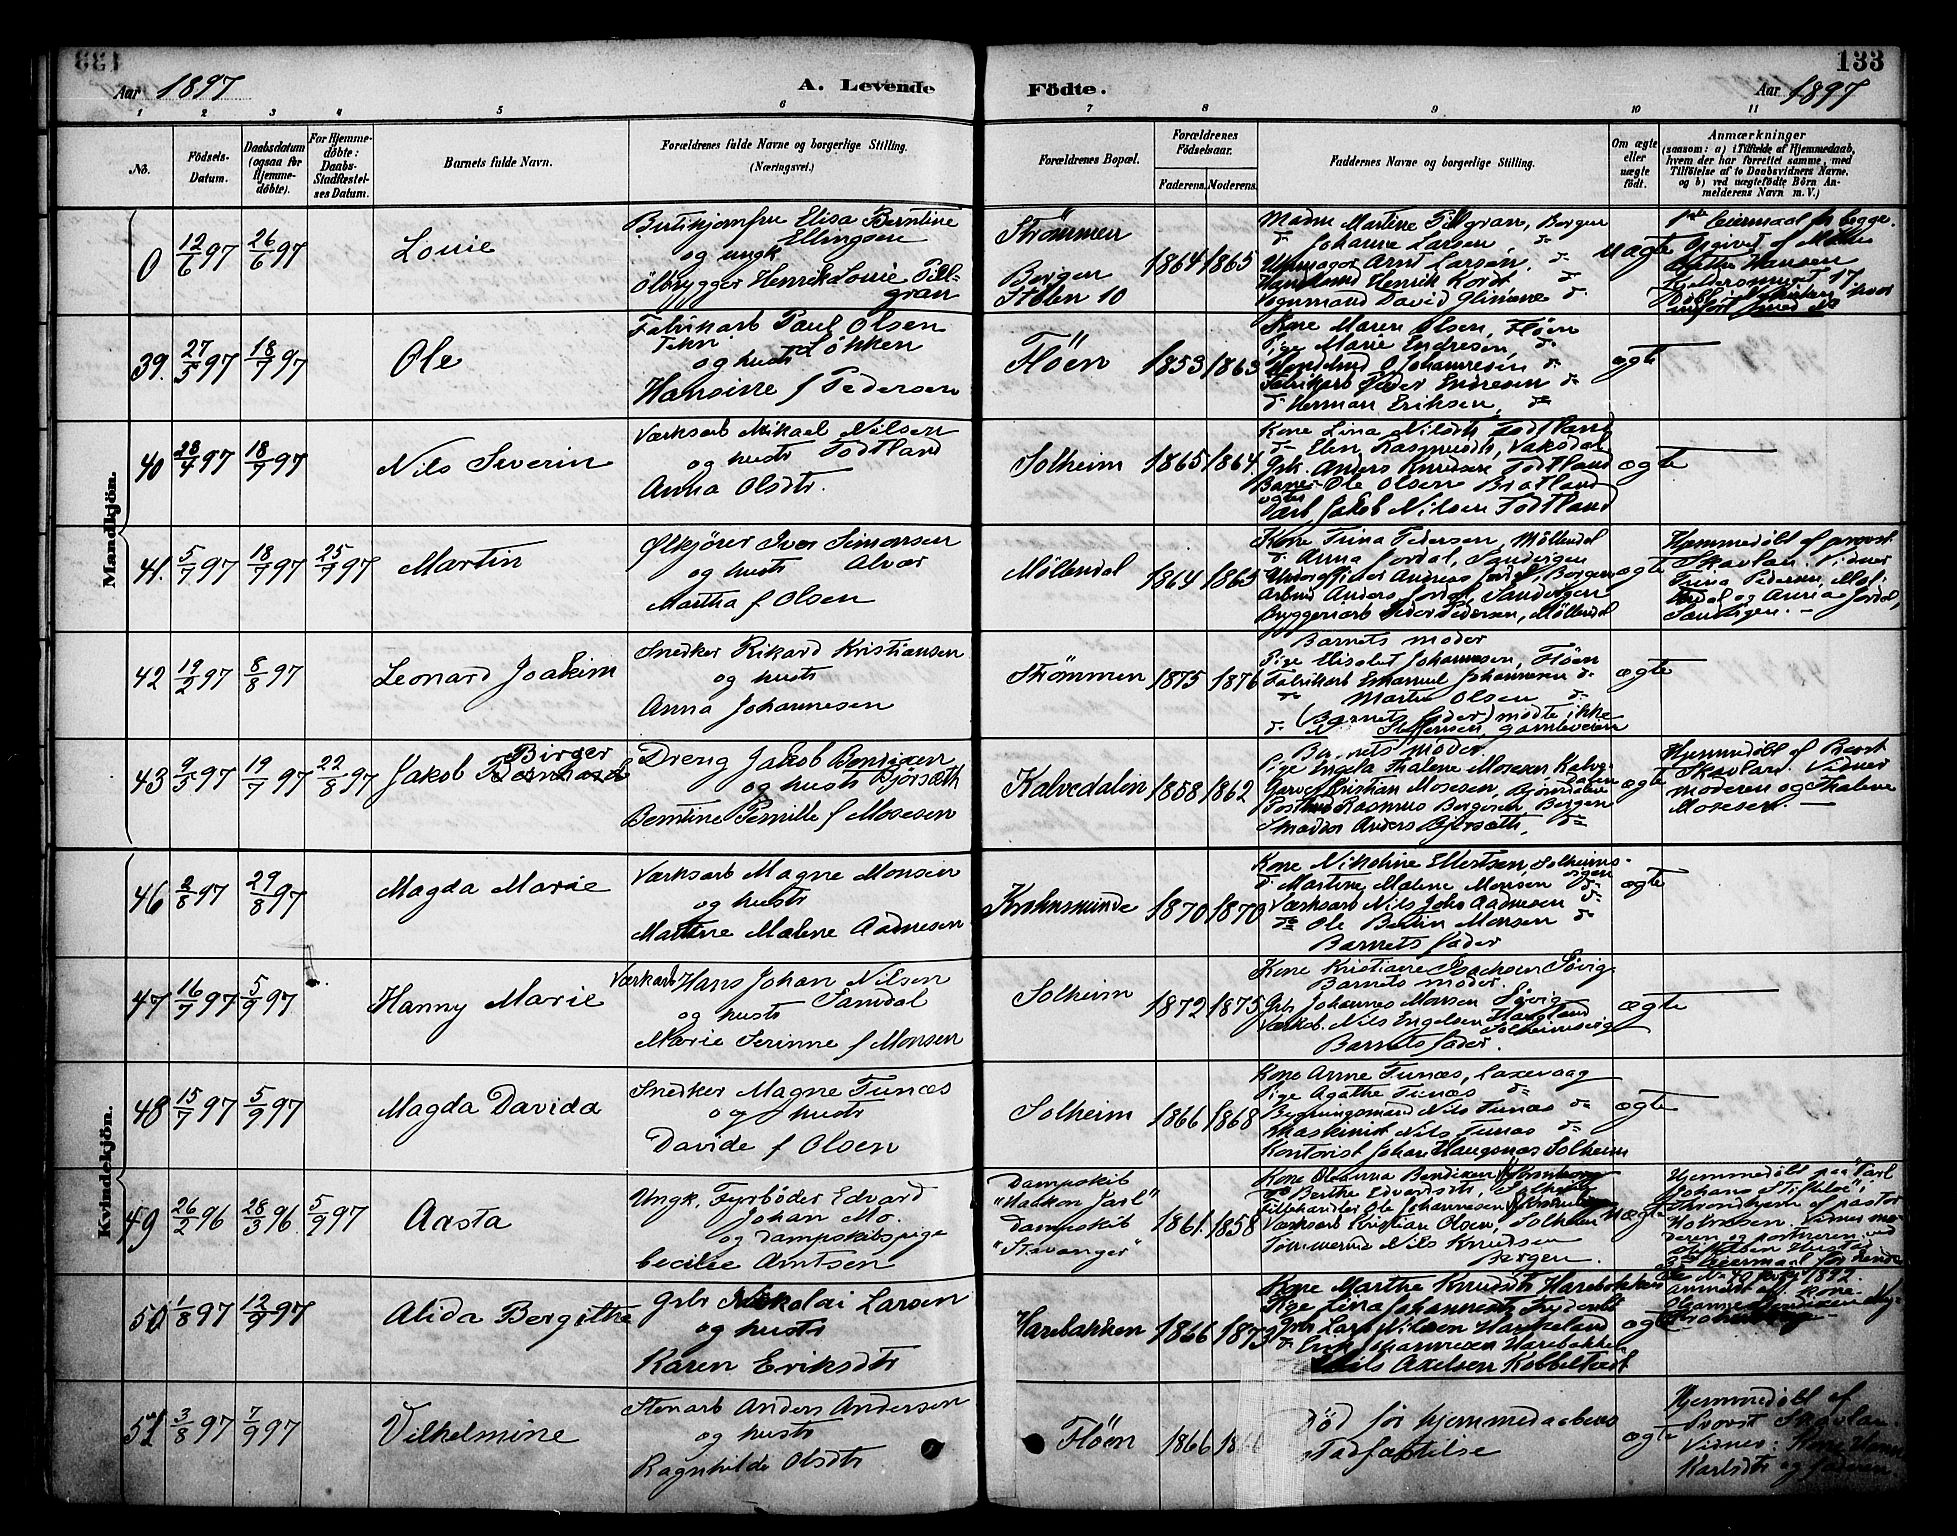 133
Aar 1897
A. Levende Födte.
Aar 1897
1 2 3 4 5 6 7 8 9 10 11
No.
Födsels-
Datum.
Daabsdatum
(ogsaa for
Hjemme-
döbte).
For Hjemme-
döbte:
Daabs-
Stadfæstel-
ses Datum.
Barnets fulde Navn.
Forældrenes fulde Navne og borgerlige Stilling.
(Næringsvei.)
Forældrenes Bopæl.
Forældrenes
Födselsaar.
Faderens. Moderens.
Faddernes Navne og borgerlige Stilling.
Om ægte
eller
uægte
födt.
Anmærkninger
(saasom: a) i Tilfælde af Hjemmedaab,
hvem der har forrettet samme, med
Tilföielse af to Daabsvidners Navne,
og b) ved uægtefödte Börn An-
melderens Navn m. V.)
Mandkjön.
0 12/6 97 26/6 97
Louie
Butikjomfru Elisa Berntine
Ellingsen
og ungk
Ölbrygger Henrik Louie Pil-
gran
Strömmen
Bergen
Stölen 10
1864 1865
Madm Martine Pilgran, Bergen
do Johanne Larsen, do
Uhrmager Arnt Larsen, do
Handelsmd Henrik Kordt do
Vognmand David Glimme do
uægte
1ste leiermaal for begge.
Opgivet af
Hansen
39. 27/5 97 18/7 97
Ole
Fabrikarb Paul Olsen
og hustr Løkken
Hansine f Pedersen
Flöen
1853 1863
Kone Maren Olsen, Flöen
Pige Marie Endresen, do
Johannesen do
Fabrikarb Peder Endresen do
do Herman Eriksen, do
ægte
40 28/4 97 18/7 97
Nils Severin
Værksarb Mikael Nilsen
og hustr Todtland
Anna Olsdtr.
Solheim
1865 1864
Kone Lina Nilsdtr Todtland
do Elen Rasmusdtr, Vaksdal
Grk. Anders Knudsen Todtland
Ole Olsen Bratland
Jakob Nilsen Todtland
ægte
41. 5/7 97 18/7 97 25/7 97
Martin
Ølkjörer Iver Simonsen
og hustr Alvær
Martha f Olsen
Møllendal
1864 1865
Kone Trina Pedersen, Möllendal
do Anna Jordal, Sandvigen
Underofficier Andreas Jordal, Bergen
Arbmd Anders Jordal Sandvigen
Bryggeriarb Peder Pedersen, Møllendal
ægte
Hjemmedöbt af provst
Skavlan. Vidner
Trina Pedersen, Møl-
lendal og Anna Jordal,
Sandvigen. —
42 19/2 97 8/8 97
Leonard Joakim
Snedker Rikard Kristiansen
og hustr
Anna Johannesen
Strømmen
1875 1876
Barnets moder
Pige Elisabet Johannesen, Flöen
Fabrikarb Emanuel Johannesen do
do Martin Olsen do
(Barnets fader) mødte ikke
Steffensen, gamleveien
ægte
43 9/5 97 19/7 97 22/8 97
Birger
Jakob Bernhard
Dreng Jakob Bendixen
og hustr Bjørsæth
Berntine Pernille f Mosesen
Kalvedalen
1858 1862
Barnets moder
Pige Engela Thalene Mosesen, Kalve
dalen
Garver Kristian Mosesen, Bjørndalen
Rasmus Børgesen Bergen
Anders Bjørsæth, do
ægte
Hjemmedöbt af Provst
Skavlan. Vidner
moderen og Thalene
Mosesen —
Kvindekjön.
46 2/8 97 29/8 97
Magda Marie
Værksarb Magne Monsen
og hustr
Martine Malene Aadnesen
Krohnsminde
1870 1870
Kone Nikoline Ellertsen, Solheims-
vigen
do Martine Malene Monsen do
Værksarb Nils Johs Aadnesen do
do Ole Bertin Monsen do
Barnets fader
ægte
47 16/7 97 5/9 97
Hanny Marie
Værkarb Hans Johan Nilsen
og hustr Samdal
Marie Serinne f Monsen
Solheim
1872 1875
Kone Kristiane Isachsen Søvig
Barnets moder.
Grbr Johannes Monsen Søvig
Værksb. Nils Engelsen Haugland
Solheimsvig
Barnets fader.
ægte
48 15/7 97 5/9 97
Magda Davida
Snedker Magne Tunæs
og hustr
Davide f Olsen
Solheim
1866 1868
Kone Anne Tunæs, Laxevaag
Pige Agathe Tunæs do
Bygningsmand Nils Tunæs do
Maskinist Nils Tunæs do
Kontorist Johan Haugsnæs Solheim
ægte
49 26/2 96 28/3 96 5/9 97
Aasta
Ungk. Fyrböder Edvard
Johan Mo.
og Dampskibspige
Cecilie Arntsen
Dampskib
"Haakon Jarl"
Dampskib
"Stavanger"
1861. 1858
Kone Oleanna Bendixen
Berthe Edvardsdtr, Solheim
Ole Johannesen
Værksarb Kristian Olsen, Solheim
Tømmermd Nils Knudsen
Bergen
uægte
Hjemmedöbt paa "Carl
Johans Stiftelse" i
Throndhjem af pastor
Vidner mo-
deren og portneren ved
3die leiermaal for hende
1892.
Anmeldt af kone
Oleanna Bendixen
50 1/8 97 12/9 97
Alida Bergitthe
Grbr Nikolai Larsen
og hustr
Karen Eriksdtr
Harebakken
1866 1873
Kone Marthe Knudsdtr Harebakken
Pige Lina Johannesdtr
Grbr Lars Nilsen Haukeland
do Erik Johannesen Harebakken
Nils Axelsen Kobbeltvedt
ægte
51 3/8 97 7/9 97
Vilhelmine
Stenarb Anders Andersen
og hustr
Ragnhilde Olsdtr
Flöen
1866
Död før hjemmedaabens
stadfæstelse
ægte
Hjemmedöbt af
Provst Skavlan.
Vidner: Kone
Karlsdtr og